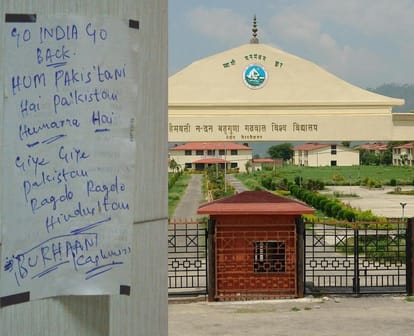 GO INDIA GO
BACK.
HOM PAKIStANI
Hai Pakistan
Humarra Hai
Giye Giye
Pakistan
Ragdo Ragdo
Hindustan
BURHAAN
गढ़वाल विश्व विद्यालय